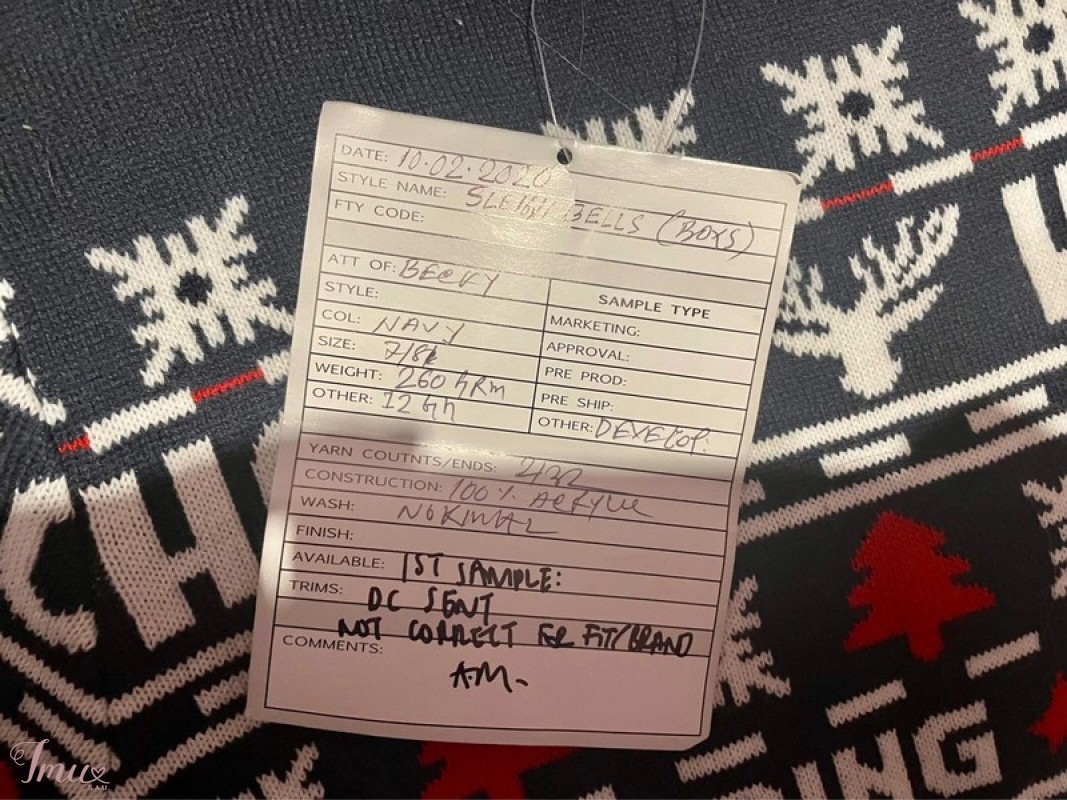 DATE: 10.02.2020
STYLE NAME: SLEIGH BELLS (BOYS)
FTY CODE:
ATT OF: BECKY
STYLE:
COL: NAVY
SIZE: 7/8
WEIGHT: 260 GRm
OTHER: 12 GG
SAMPLE TYPE
MARKETING:
APPROVAL:
PRE PROD:
PRE SHIP:
OTHER: DEVELOP.
YARN COUTNTS/ENDS: 2/32
CONSTRUCTION: 100% ACRYLIC
WASH: NORMAL
FINISH:
AVAILABLE: 1ST SAMPLE:
TRIMS: DC SENT
NOT CORRECT FOR FIT/BRAND
COMMENTS:
A.M.
CH
ING
Imu
SAU